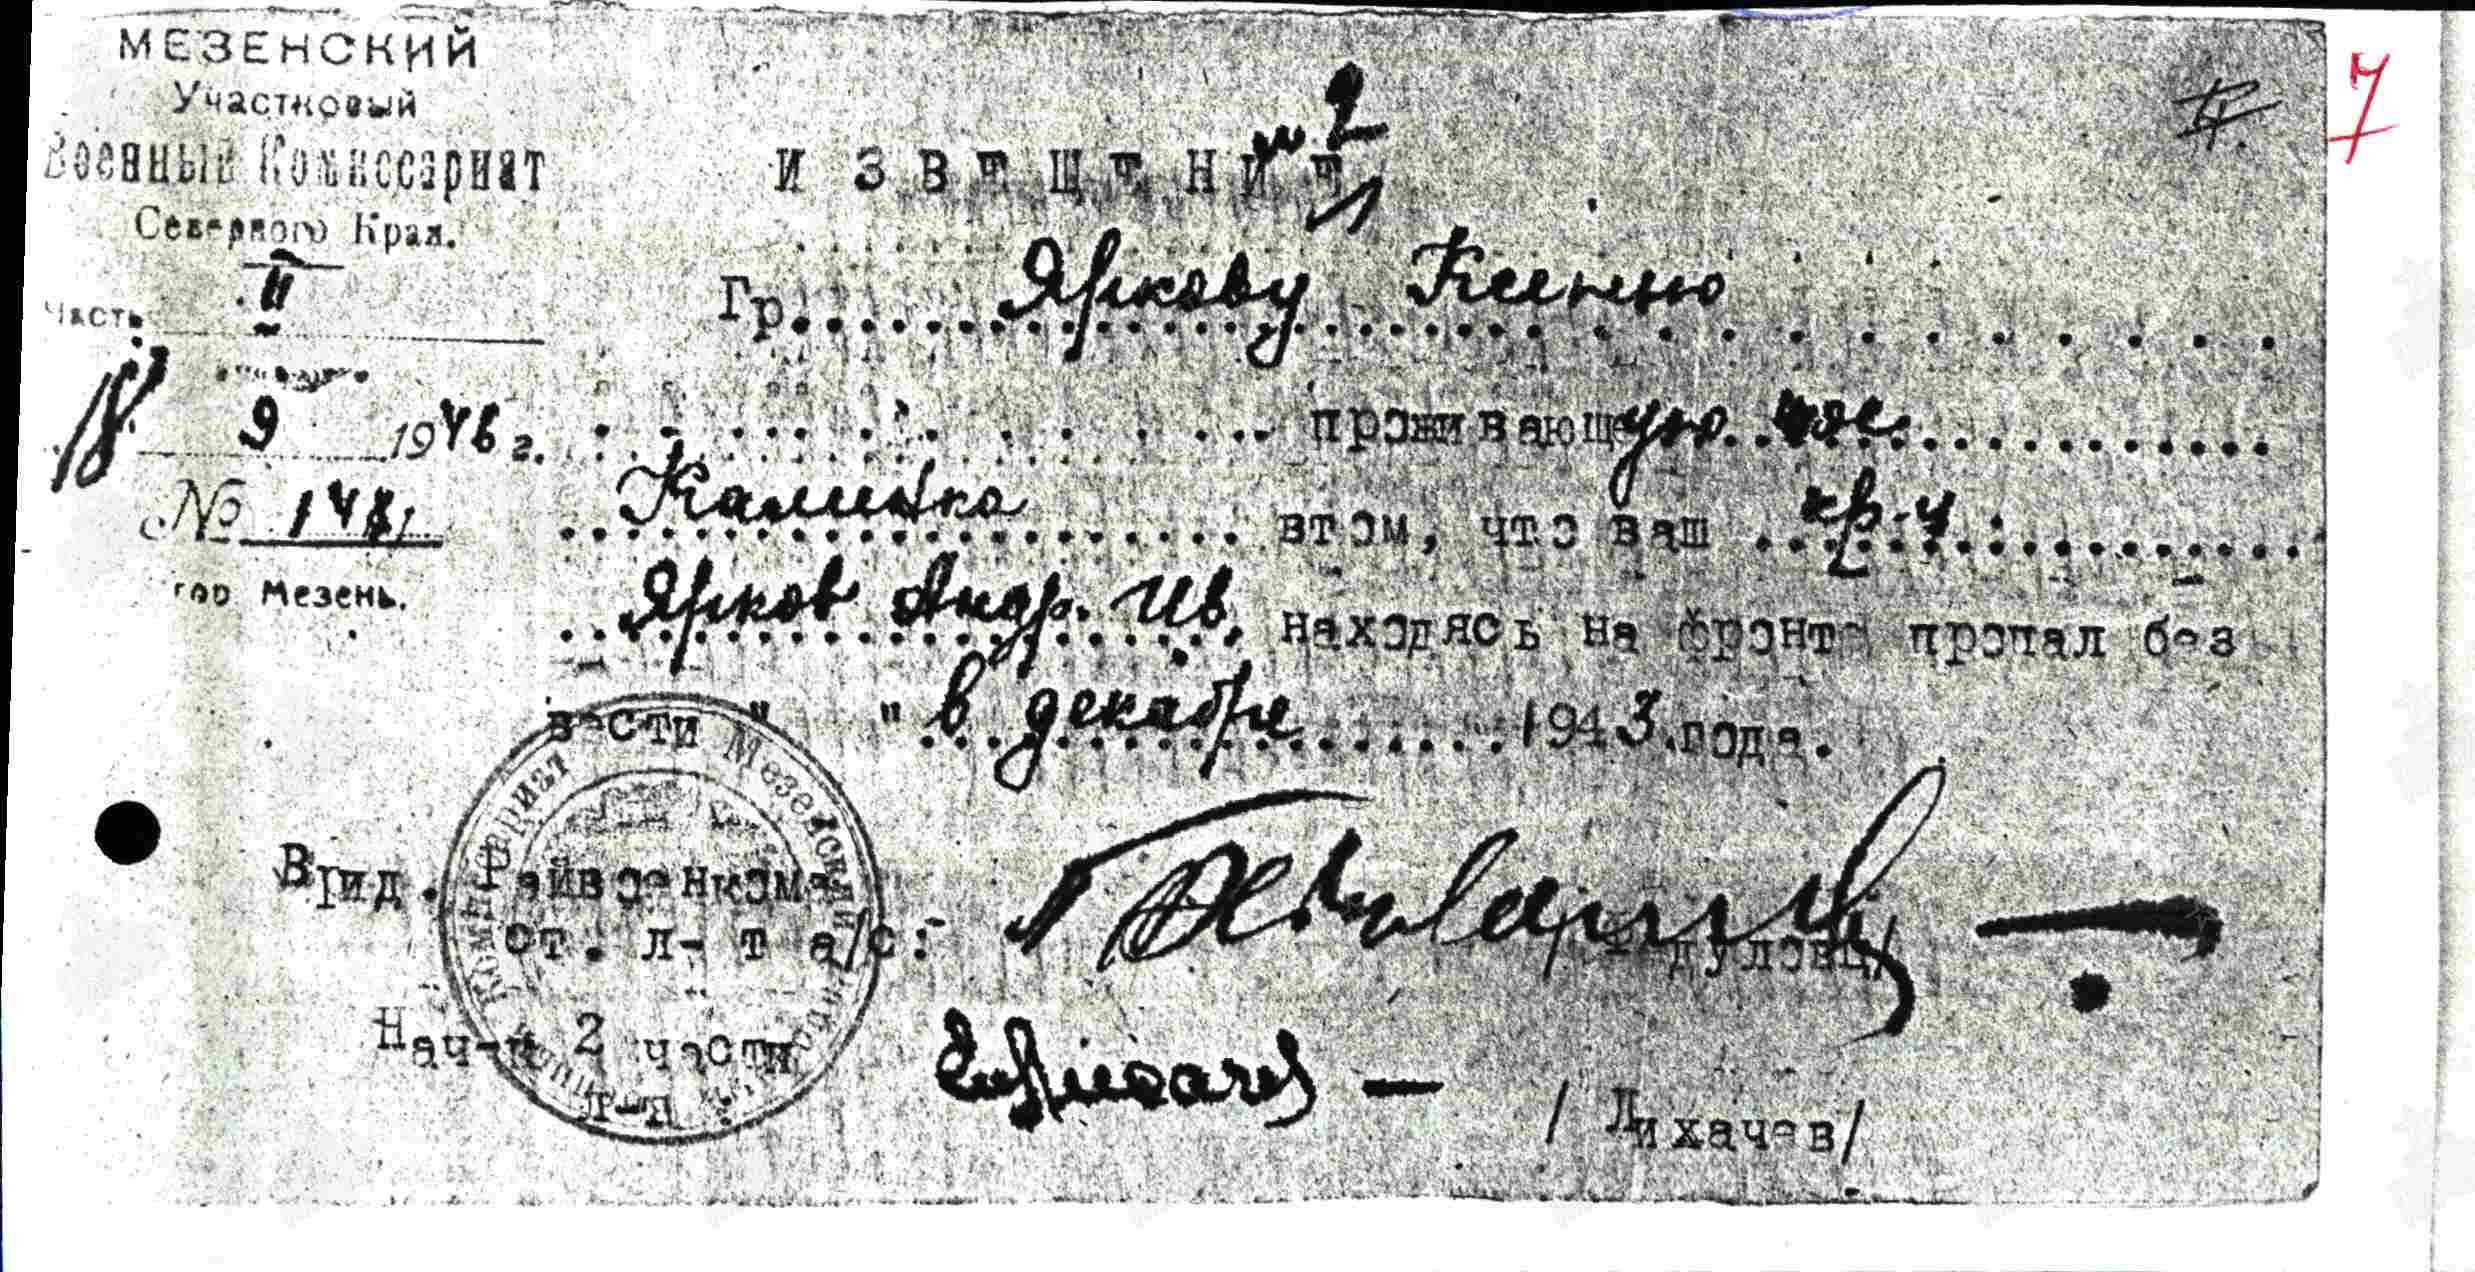 МЕЗЕНСКИЙ
Участковый
Военный Комиссариат
Северного Края.
Часть II
18 9 1946 г.
№
гор Мезень.
7
ИЗВЕЩЕНИЕ
№ 2
Гр. Яркову Ксению
проживающую
Калинка втом, что ваш кр-ц
Ярков Андр. Ив. находясь на фронте пропал без
вести " " в декабре 1943.года.
Врид. Райвоенкома
ст. л-т а/с:
Нач-к 2 части
/ Лихачев/